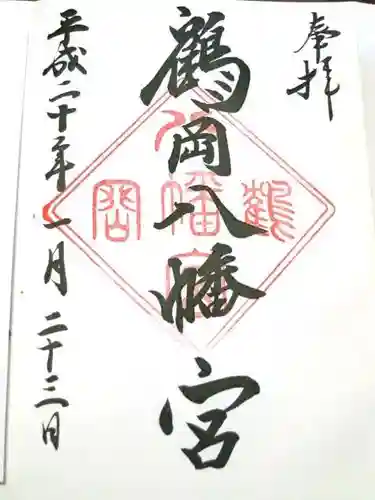 奉拝
鶴岡八幡宮
鶴岡八幡宮
平成二十年一月二十三日